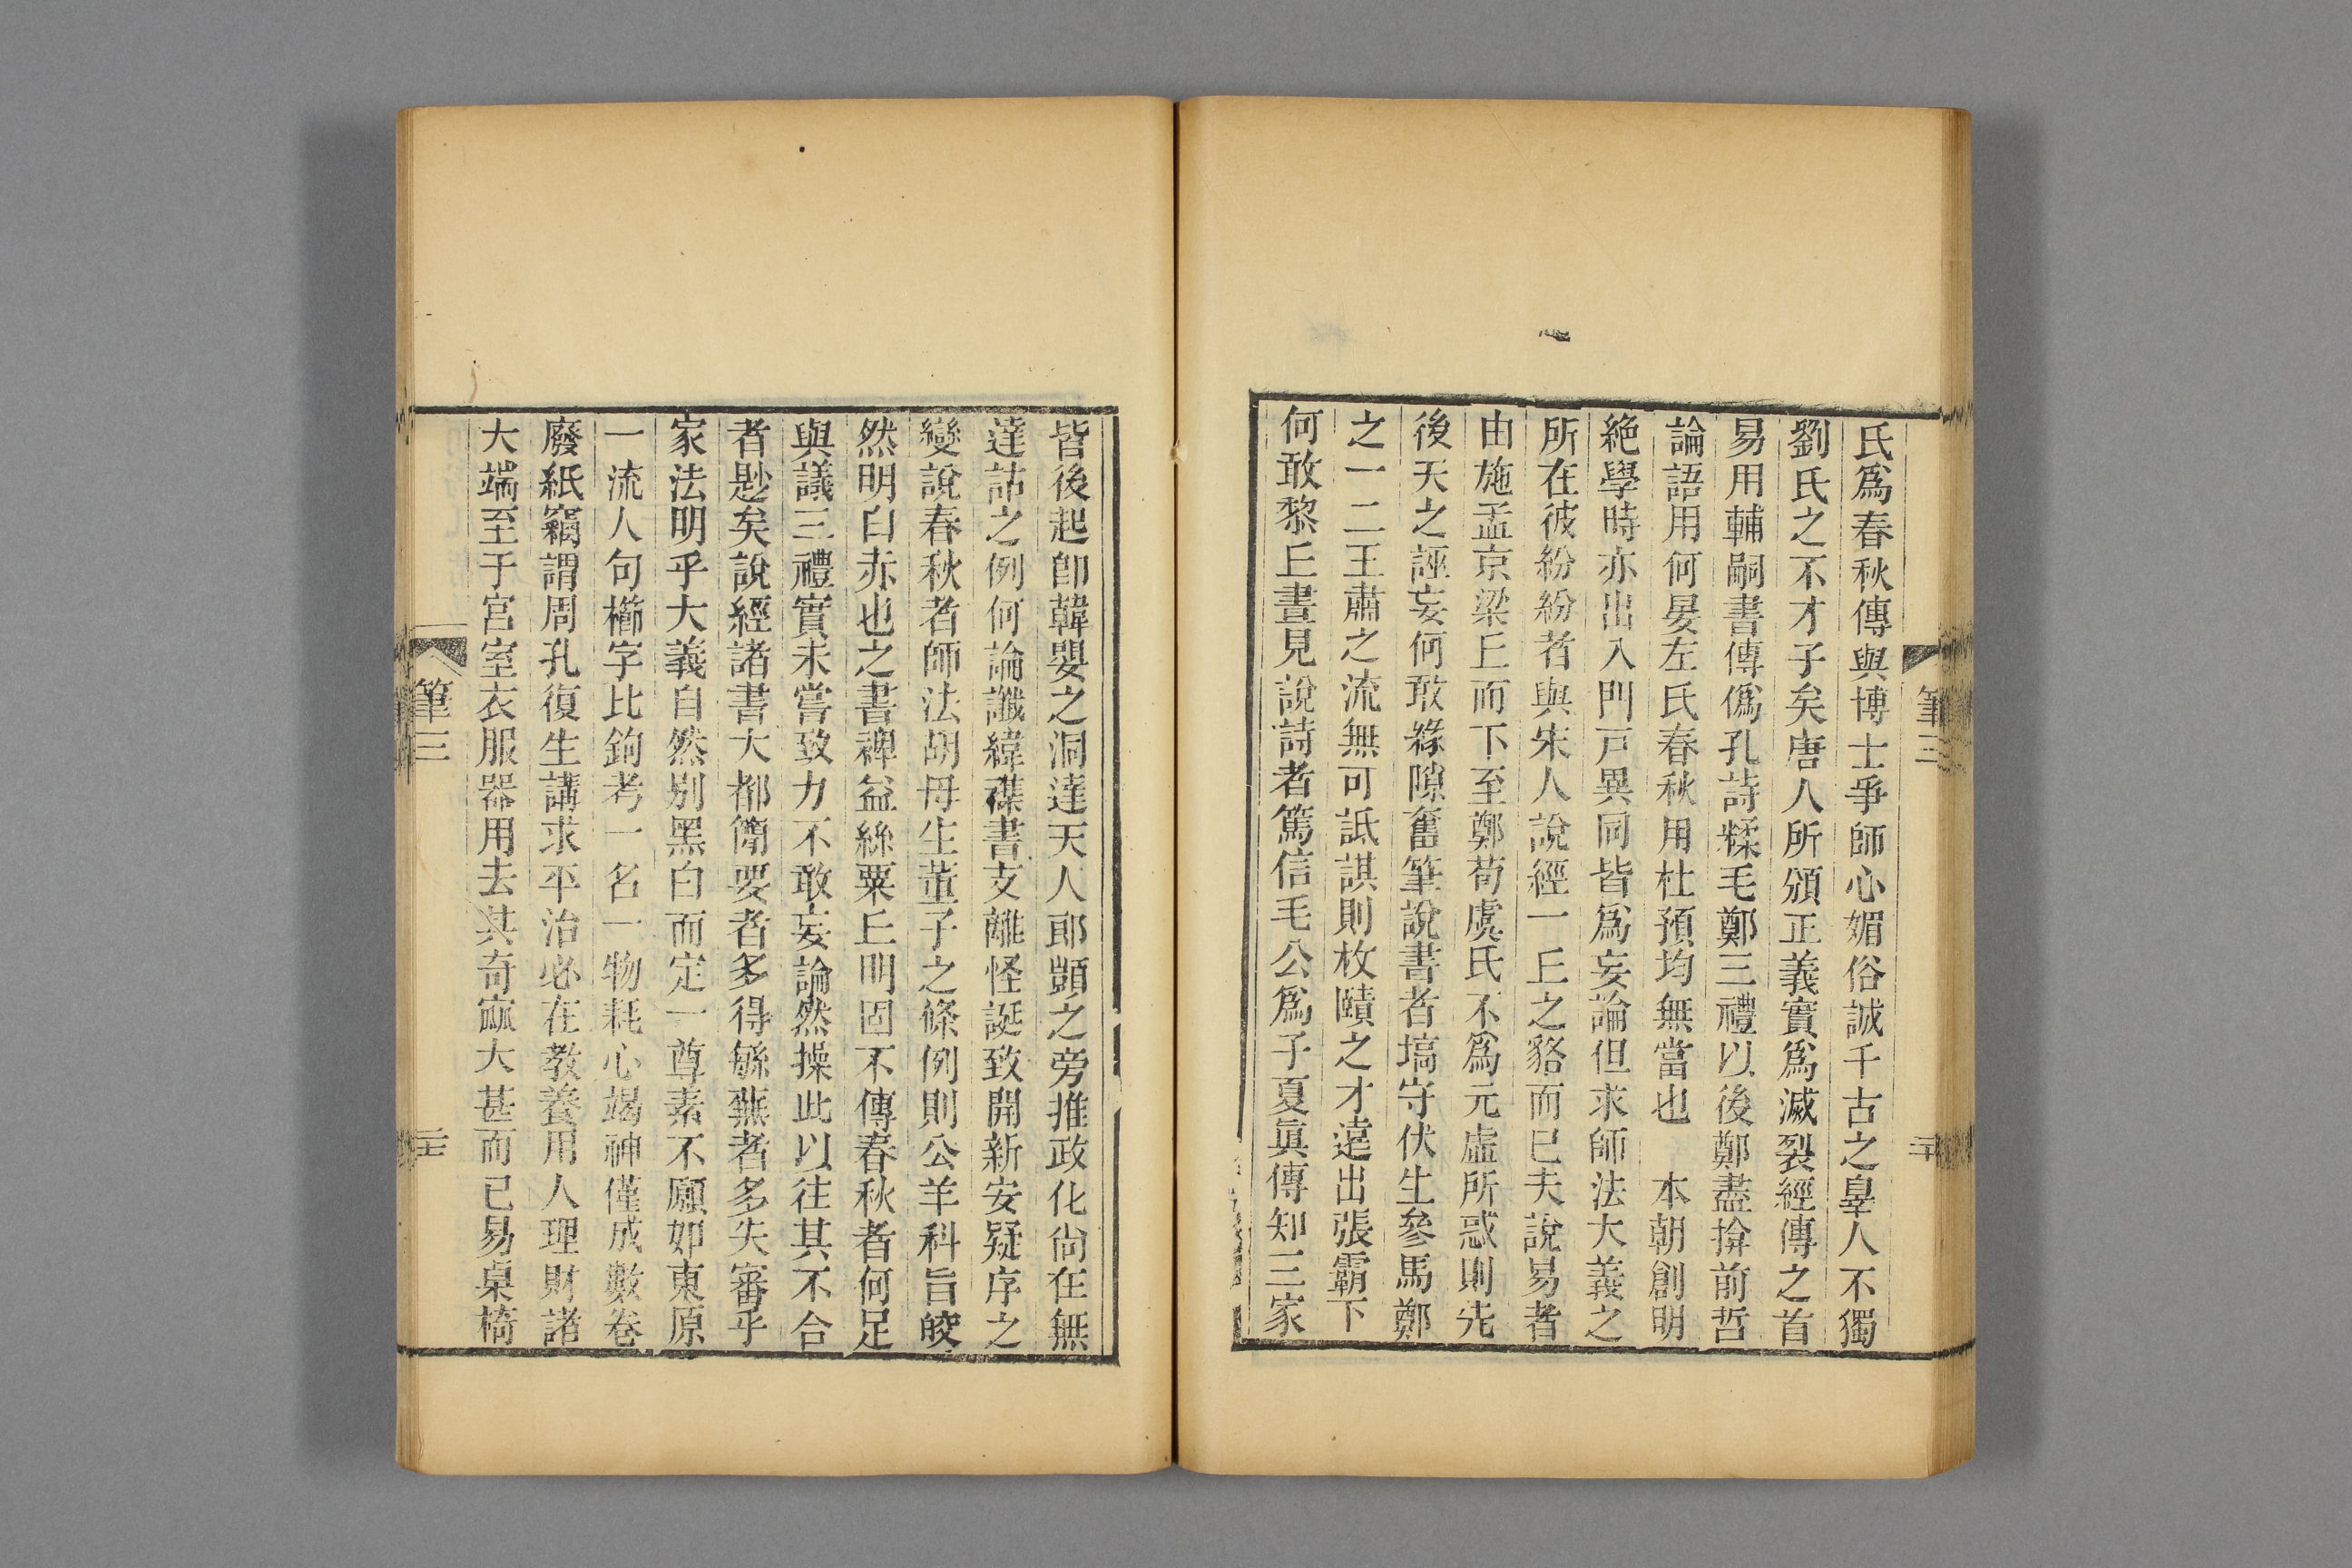 氏爲春秋傳與博士爭師心媚俗誠千古之辠人不獨
劉氏之不才子矣唐人所頒正義實爲滅裂經傳之首
易用輔嗣書傳僞孔詩糅毛鄭三禮以後鄭盡揜前哲
論語用何晏左氏春秋用杜預均無當也　本朝創明
絶學時亦出入門戸異同皆爲妄論但求師法大義之
所在彼紛紛者與宋人說經一丘之貉而已夫說易者
由施孟京梁丘而下至鄭荀虞氏不爲元虛所惑則先
後天之誣妄何敢緣隙奮筆說書者塙守伏生參馬鄭
之一二王肅之流無可詆諆則枚賾之才遠出張霸下
何敢黎丘晝見說詩者篤信毛公爲子夏眞傳知三家
筆三
二十
皆後起卽韓嬰之洞達天人郎顗之旁推政化尙在無
達詁之例何論讖緯襍書支離怪誕致開新安疑序之
變說春秋者師法胡毋生董子之條例則公羊科旨皎
然明白赤也之書裨益絲粟丘明固不傳春秋者何足
與議三禮實未嘗致力不敢妄論然操此以往其不合
者尟矣說經諸書大都簡要者多得緐蕪者多失審乎
家法明乎大義自然別黑白而定一尊素不願如東原
一流人句櫛字比鉤考一名一物耗心竭神僅成數卷
廢紙竊謂周孔復生講求平治必在敎養用人理財諸
大端至于宮室衣服器用去其奇窳大甚而已易桌椅
筆三
二十一